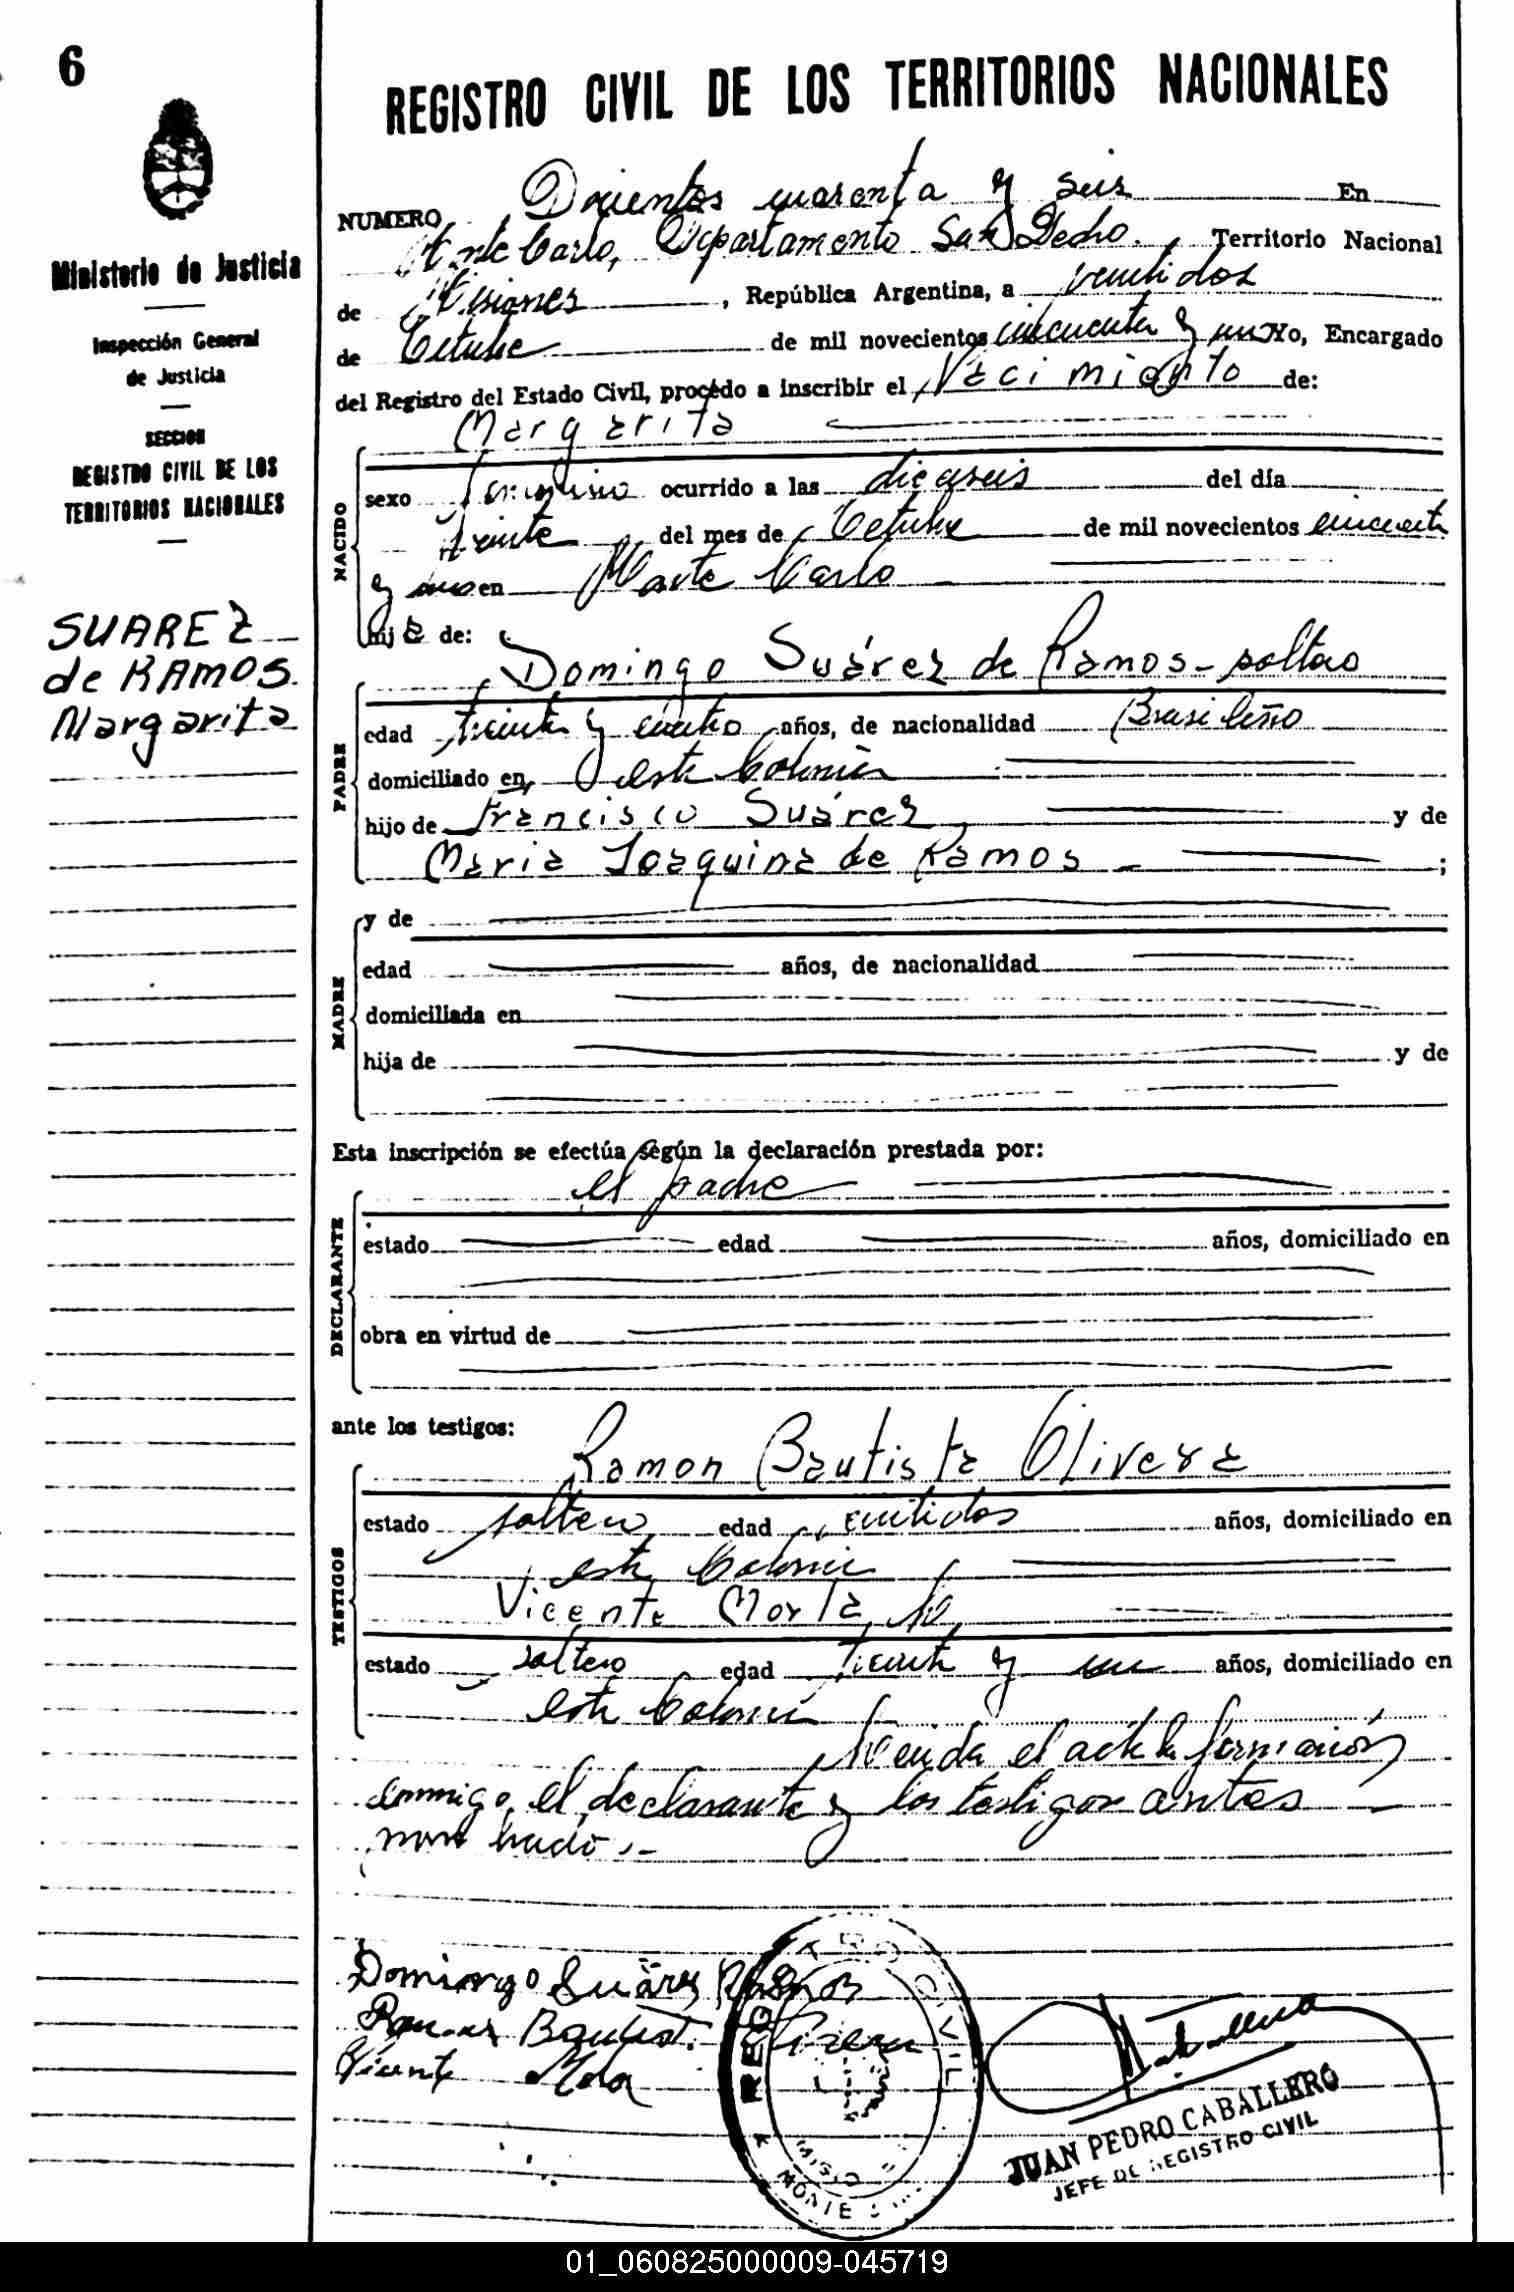 6
REGISTRO CIVIL DE LOS TERRITORIOS NACIONALES
Ministerio de Justicia
Inspección General
de Justicia
SECCION
REGISTRO CIVIL DE LOS
TERRITORIOS NACIONALES
SUAREZ
de RAMOS
Margarita
NUMERO Docientos cuarenta y seis En
Monte Carlo, Departamento San Pedro. Territorio Nacional
de Misiones, República Argentina, a veintidos
de Octubre de mil novecientos cincuenta y uno Yo, Encargado
del Registro del Estado Civil, procedo a inscribir el Nacimiento de:
Margarita
NACIDO
sexo femenino ocurrido a las dieciseis del día
veinte del mes de Octubre de mil novecientos cincuenta
y uno en Monte Carlo
hija de:
Domingo Suárez de Ramos - soltero
PADRE
edad treinta y cuatro años, de nacionalidad Brasileño
domiciliado en esta Colonia
hijo de Francisco Suárez y de
Maria Joaquina de Ramos ;
MADRE
y de
edad años, de nacionalidad
domiciliada en
hija de y de
Esta inscripción se efectúa según la declaración prestada por:
el padre
DECLARANTE
estado edad años, domiciliado en
obra en virtud de
ante los testigos:
Ramon Bautista Olivera
TESTIGOS
estado soltero edad veintidos años, domiciliado en
esta Colonia
Vicente
estado soltero edad treinta y un años, domiciliado en
esta Colonia
Leida el acta la firmaron
conmigo, el declarante y los testigos antes
nombrado.-
Domingo Suárez Ramos
Ramon Bautista Olivera
Vicente Mora
REGISTRO CIVIL
MONTE
JUAN PEDRO CABALLERO
JEFE DE REGISTRO CIVIL
01_060825000009-045719